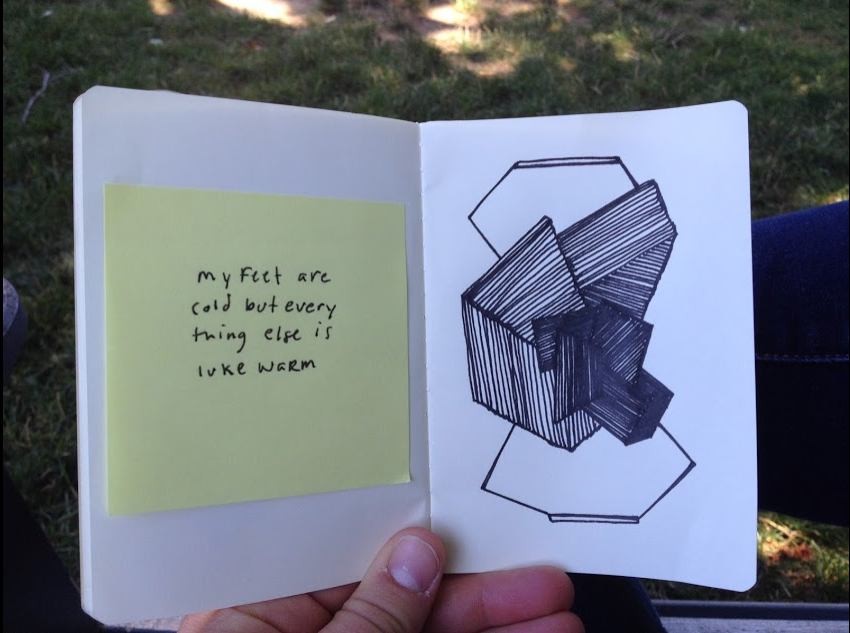 my Feet are
cold but every
thing else is
luke warm